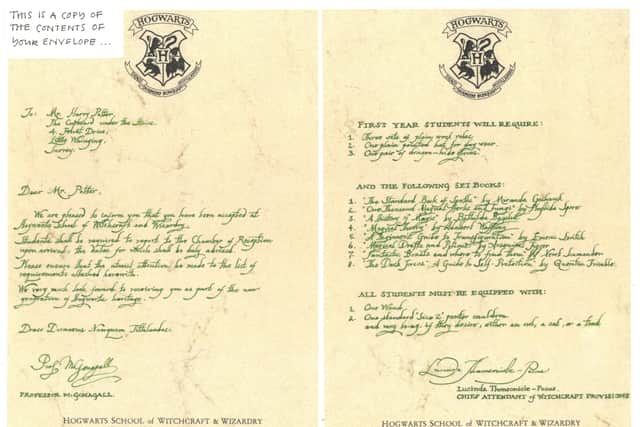 THIS IS A COPY OF
THE CONTENTS OF
YOUR ENVELOPE ...
HOGWARTS
To: Mr Harry Potter,
The Cupboard under the Stairs
4, Privet Drive,
Little Whinging,
Surrey.
Dear Mr. Potter,
We are pleased to inform you that you have been accepted at
Hogwarts School of Witchcraft and Wizardry.
Students shall be required to report to the Chamber of Reception
upon arrival, the dates for which shall be duly advised.
Please ensure that the utmost attention be made to the list of
requirements attached herewith.
We very much look forward to receiving you as part of the new
generation of Hogwarts heritage.
Draco Dormiens Nunquam Titillandus.
Prof. McGonagall
PROFESSOR McGONAGALL
HOGWARTS SCHOOL of WITCHCRAFT & WIZARDRY
HOGWARTS
FIRST YEAR STUDENTS WILL REQUIRE:
1 Three sets of plain work robes
2 One plain pointed hat for day wear
3 One pair of dragon-hide gloves
AND THE FOLLOWING SET BOOKS:
1 "The Standard Book of Spells" by Miranda Goshawk
2 "One Thousand Magical Herbs and Fungi" by Phyllida Spore
3 "A History of Magic" by Bathilda Bagshot
4 "Magical Theory" by Adalbert Waffling
5 "A Beginner's Guide to Transfiguration" by Emeric Switch
6 "Magical Drafts and Potions" by Arsenius Jigger
7 "Fantastic Beasts and where to find them" by Newt Scamander
8 "The Dark Forces: A Guide to Self-Protection" by Quentin Trimble
ALL STUDENTS MUST BE EQUIPPED WITH:
1 One Wand
2 One standard 'size 2' pewter cauldron
and may bring, if they desire, either an owl, a cat, or a toad
Lucinda Thomsonicle-Pocus
Lucinda Thomsonicle-Pocus
CHIEF ATTENDANT of WITCHCRAFT PROVISIONS
HOGWARTS SCHOOL of WITCHCRAFT & WIZARDRY